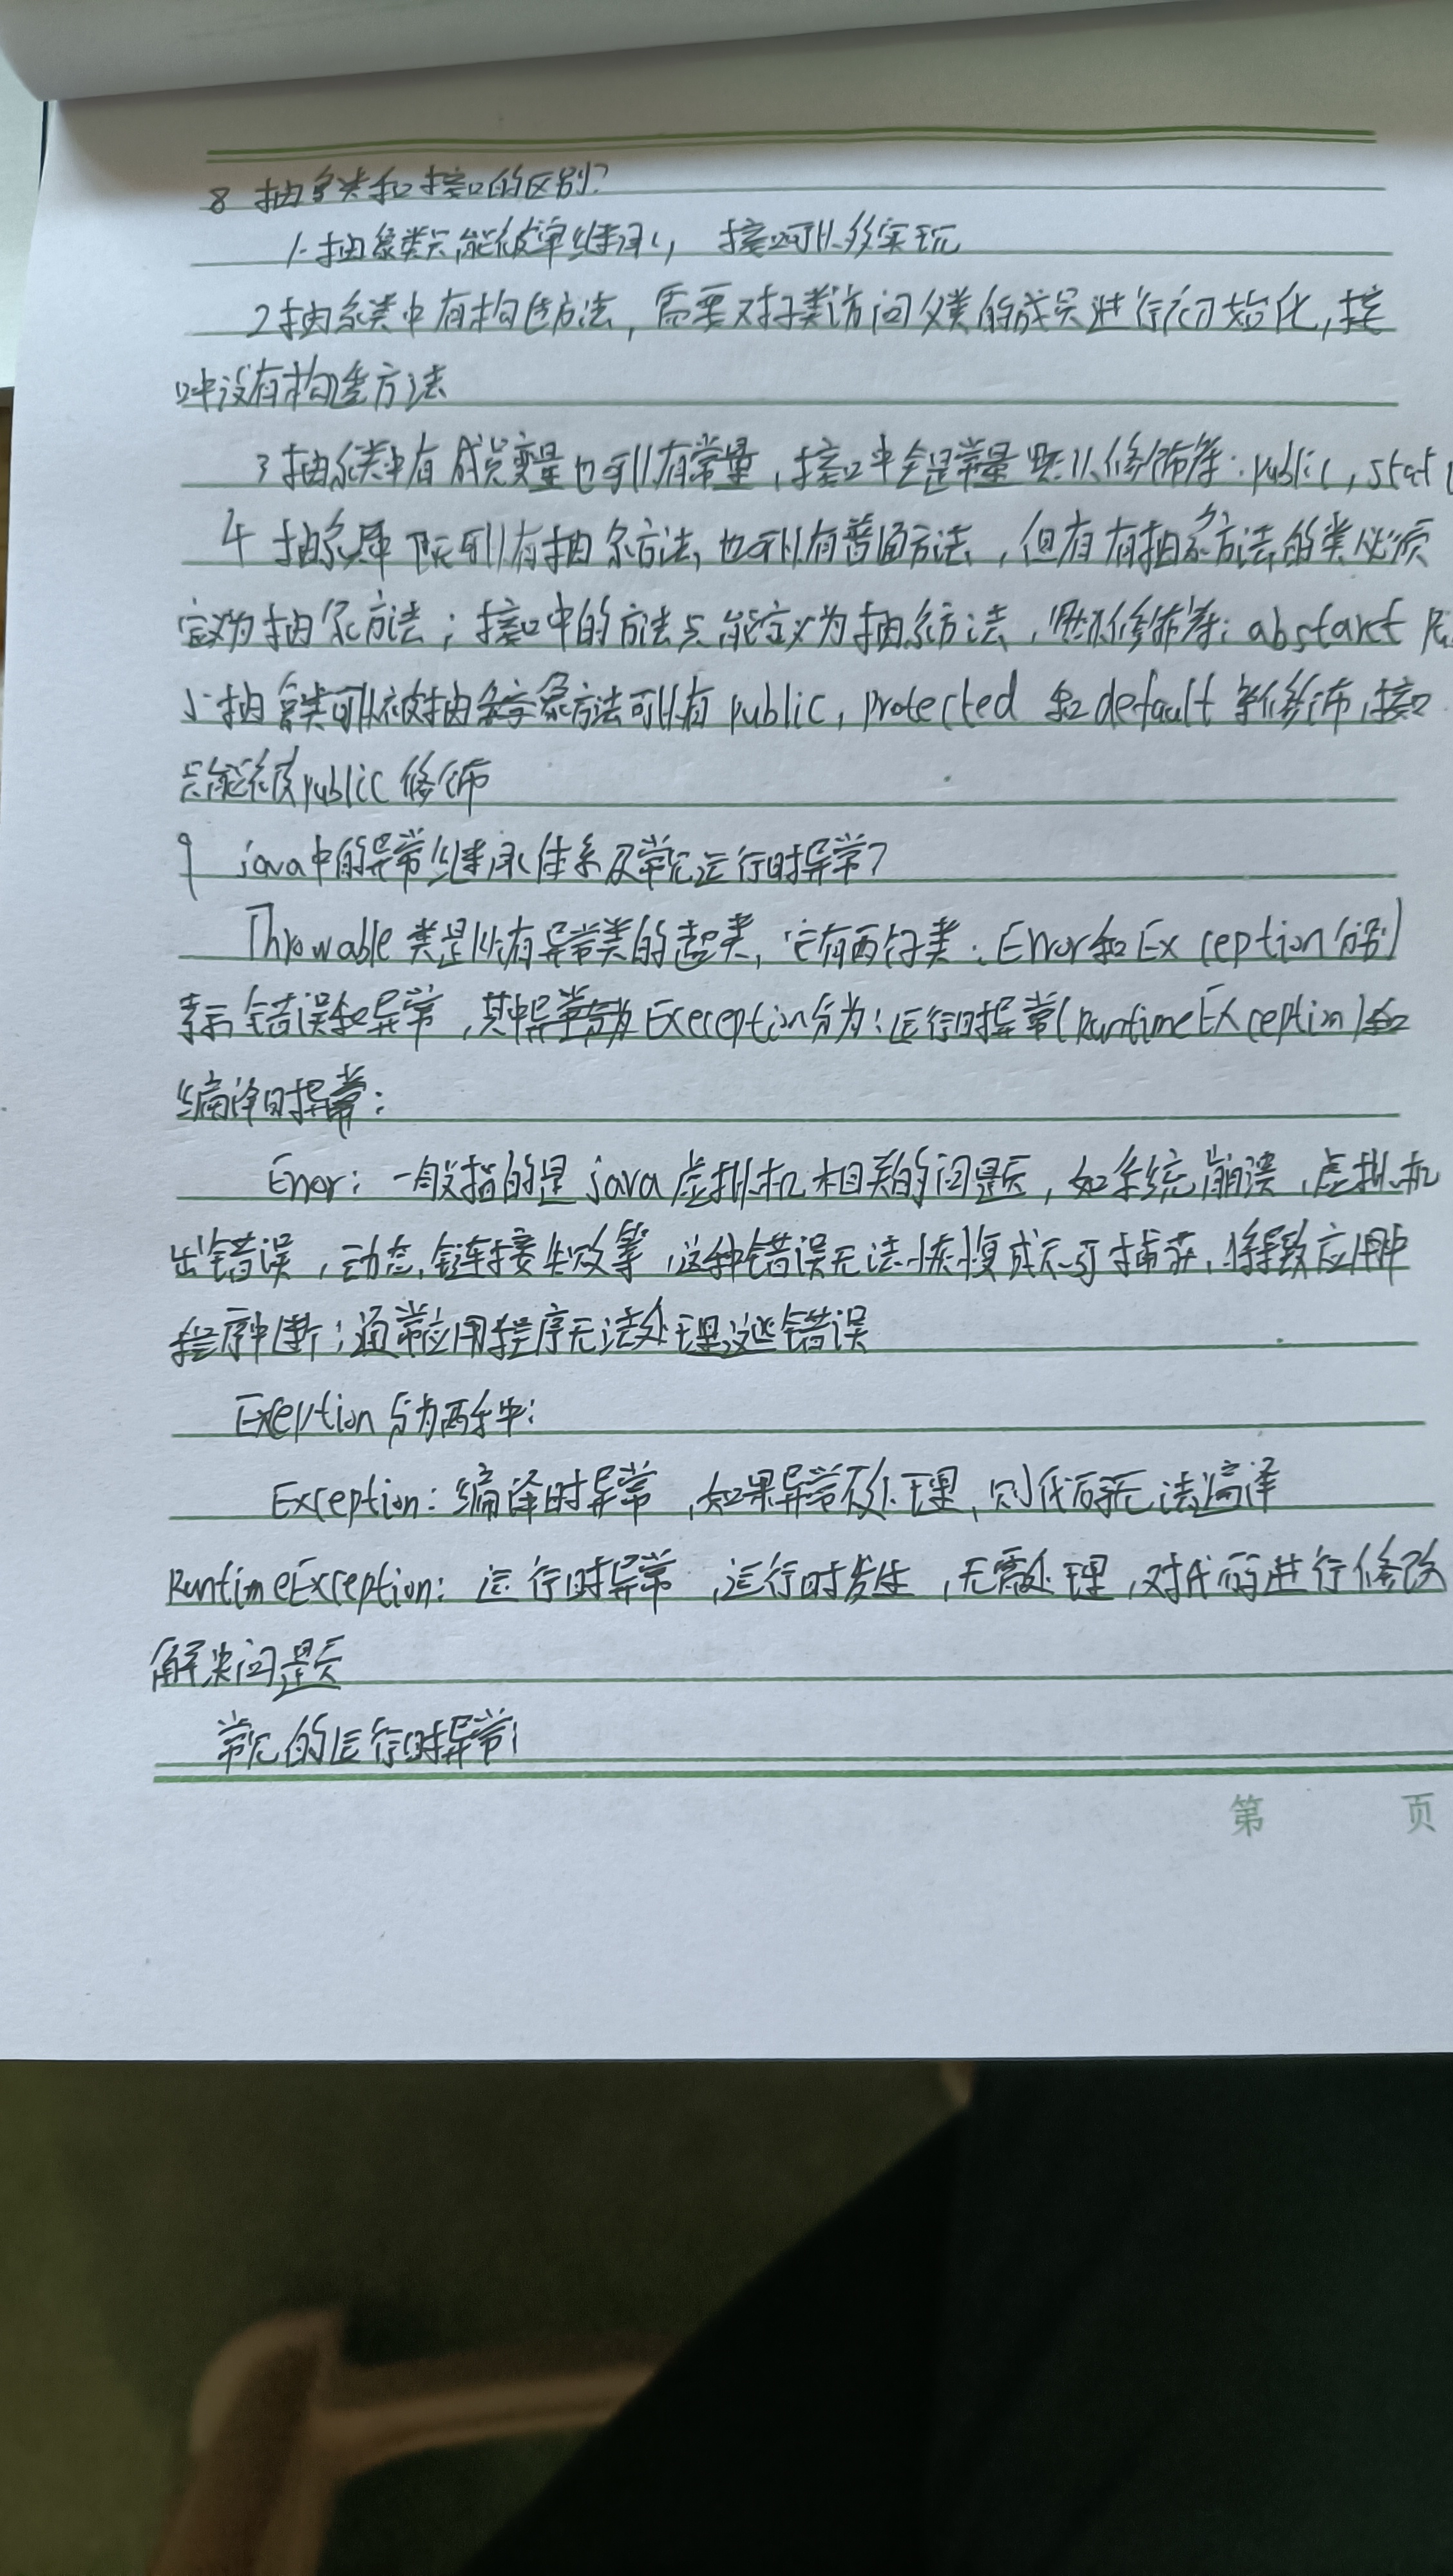 8 抽象类和接口的区别?
1.抽象类只能被单继承, 接口可以多实现
2抽象类中有构造方法, 需要对子类访问父类的成员进行初始化, 接
口中没有构造方法
3抽象类中有成员变量也可以有常量, 接口中全是常量 默认修饰符: public, stat
4 抽象类 可以有抽象方法, 也可以有普通方法, 但有有抽象方法的类必须
定义为抽象方法; 接口中的方法只能定义为抽象方法, 默认修饰符: abstart
5.抽象类可以被抽象方法可以有public, protected 和default 等修饰, 接口
只能被public修饰
9 java中的异常继承体系及常见运行时异常?
Throwable类是所有异常类的超类, 它有两个子类: Error和Exception分别
表示错误和异常, 其中异常 Exeception分为: 运行时异常(RuntimeException)和
编译时异常:
Error: 一般指的是java虚拟机相关的问题, 如系统崩溃, 虚拟机
出错误, 动态,链接失败等, 这种错误无法恢复或不可捕获, 将导致应用
程序中断; 通常应用程序无法处理这些错误
Exception 分为两种:
Exception: 编译时异常, 如果异常不处理, 则代码无法编译
RuntimeException: 运行时异常, 运行时发生, 无需处理, 对代码进行修改
解决问题
常见的运行时异常:
第 页